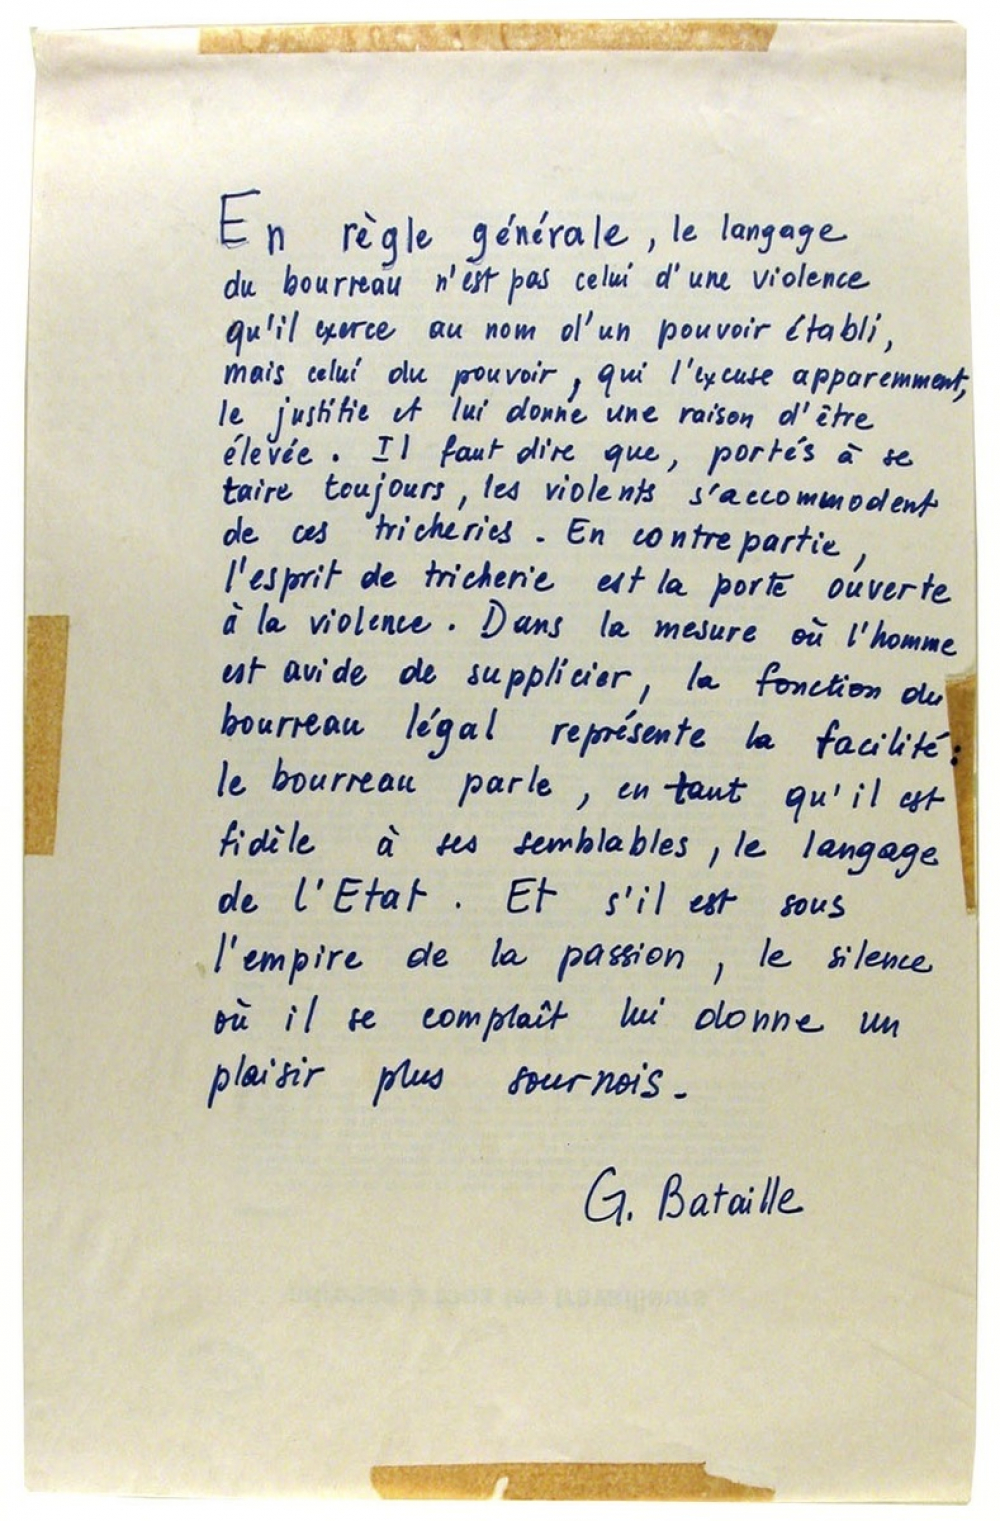 En règle générale, le langage
du bourreau n'est pas celui d'une violence
qu'il exerce au nom d'un pouvoir établi,
mais celui du pouvoir, qui l'excuse apparemment,
le justifie et lui donne une raison d'être
élevée. Il faut dire que, portés à se
taire toujours, les violents s'accommodent
de ces tricheries. En contrepartie,
l'esprit de tricherie est la porte ouverte
à la violence. Dans la mesure où l'homme
est avide de supplicier, la fonction du
bourreau légal représente la facilité:
le bourreau parle, en tant qu'il est
fidèle à ses semblables, le langage
de l'Etat. Et s'il est sous
l'empire de la passion, le silence
où il se complaît lui donne un
plaisir plus sournois.
G. Bataille